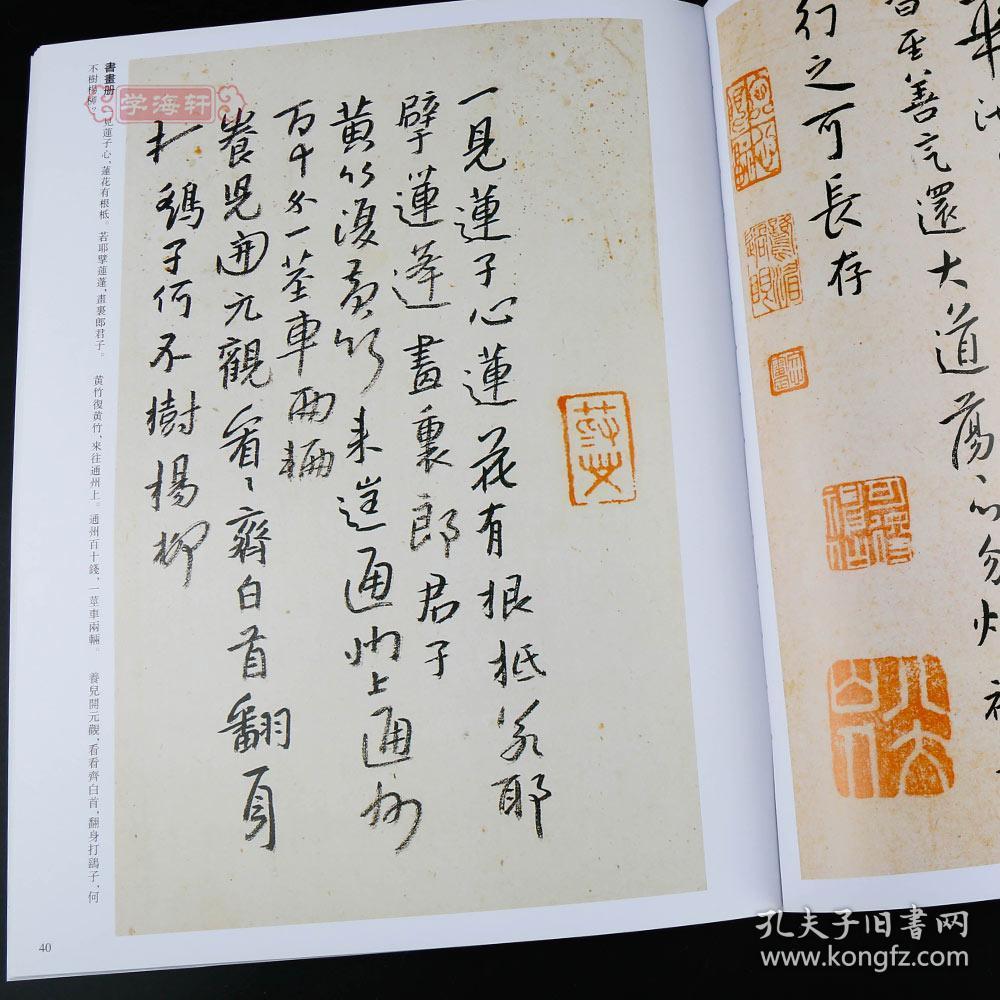 一見蓮子心蓮花有根柢若耶
擘蓮蓬畫裏郎君子
黄竹復黄竹来達通州上通州
百十錢一莖車兩輛
養児開元觀看〻齊白首翻身
打鷂子何不樹楊柳
書畫册
一見蓮子心，蓮花有根柢。若耶擘蓮蓬，畫裏郎君子。 黄竹復黄竹，來往通州上。通州百十錢，一莖車兩輛。 養兒開元觀，看看齊白首，翻身打鷂子，何
不樹楊柳。
善言還大道蕩心勿灼
行之可長存
学海轩
40
孔夫子旧书网
www.kongfz.com